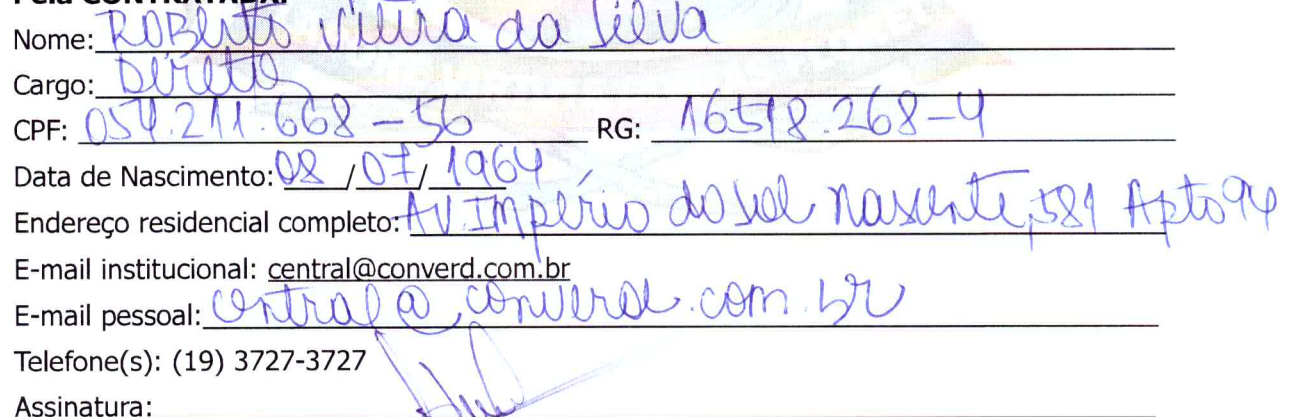 Pela CONTRATADA:
Nome: Roberto Vieira da Silva
Cargo: Diretor
CPF: 054.211.668-56 RG: 16518.268-4
Data de Nascimento: 08/07/1964
Endereço residencial completo: AV. Império do sol nascente, 581 Apto 94
E-mail institucional: central@converd.com.br
E-mail pessoal: central@converd.com.br
Telefone(s): (19) 3727-3727
Assinatura: